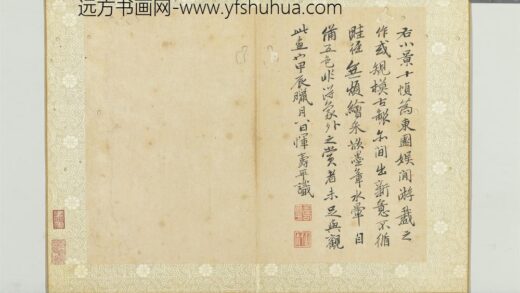 远方书画网-www.yfshuhua.com
右小景十幀為東園娛閒游戲之
作或規模古間出新意不循
畦徑無煩繪采墨華水暈自
備五色非得象外之賞者未足與觀
此甲辰臘月八日惲壽平識